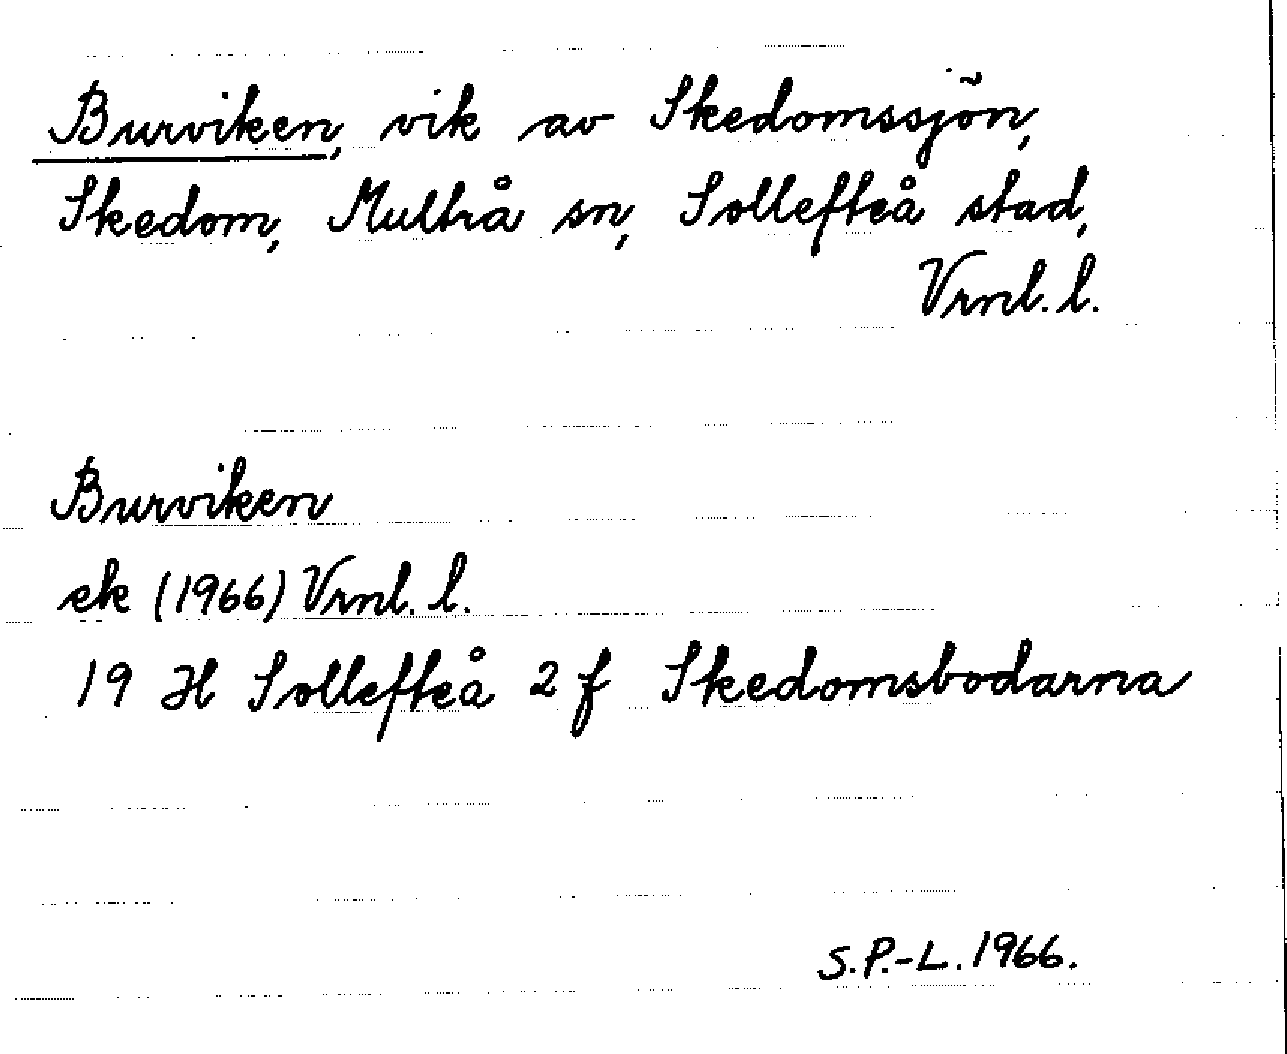 Burviken, vik av Skedomssjön,
Skedom, Multrå sn, Sollefteå stad,
Vrnl. l.
Burviken
ek (1966) Vrnl. l.
19 H Sollefteå 2 f Skedomsbodarna
S.P.-L. 1966.